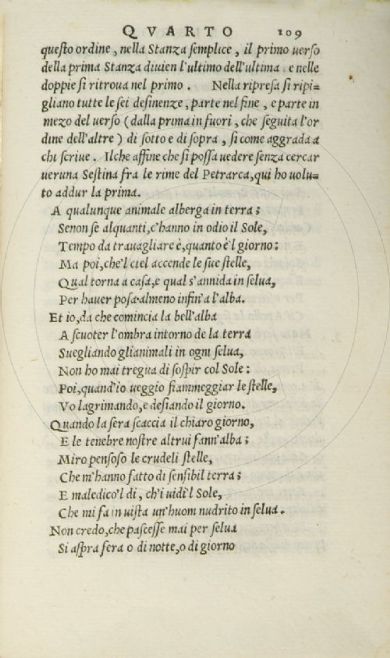 QVARTO 109
questo ordine, nella Stanza semplice, il primo uerso
della prima Stanza diuien l'ultimo dell'ultima e nelle
doppie si ritroua nel primo. Nella ripresa si ripi-
gliano tutte le sei desinenze, parte nel fine, e parte in
mezo del uerso (dalla prima in fuori, che seguita l'or
dine dell'altre) di sotto e di sopra, si come aggrada a
chi scriue. Ilche affine che si possa uedere senza cercar
ueruna Sestina fra le rime del Petrarca, qui ho uolu-
to addur la prima.
A qualunque animale alberga in terra;
Senon se alquanti, c'hanno in odio il Sole,
Tempo da trauagliare è, quanto è'l giorno:
Ma poi, che'l ciel accende le sue stelle,
Qual torna a casa, e qual s'annida in selua,
Per hauer posa almeno infin'a l'alba.
Et io, da che comincia la bell'alba
A scuoter l'ombra intorno de la terra
Suegliando glianimali in ogni selua,
Non ho mai tregua di sospir col Sole:
Poi, quand'io ueggio fiammeggiar le stelle,
Vo lagrimando, e desiando il giorno.
Quando la sera scaccia il chiaro giorno,
E le tenebre nostre altrui fann'alba;
Miro pensoso le crudeli stelle,
Che m'hanno fatto di sensibil terra;
E maledico'l dì, ch'i uidi'l Sole,
Che mi fa in uista un'huom nudrito in selua.
Non credo, che pascesse mai per selua
Si aspra fera o di notte, o di giorno